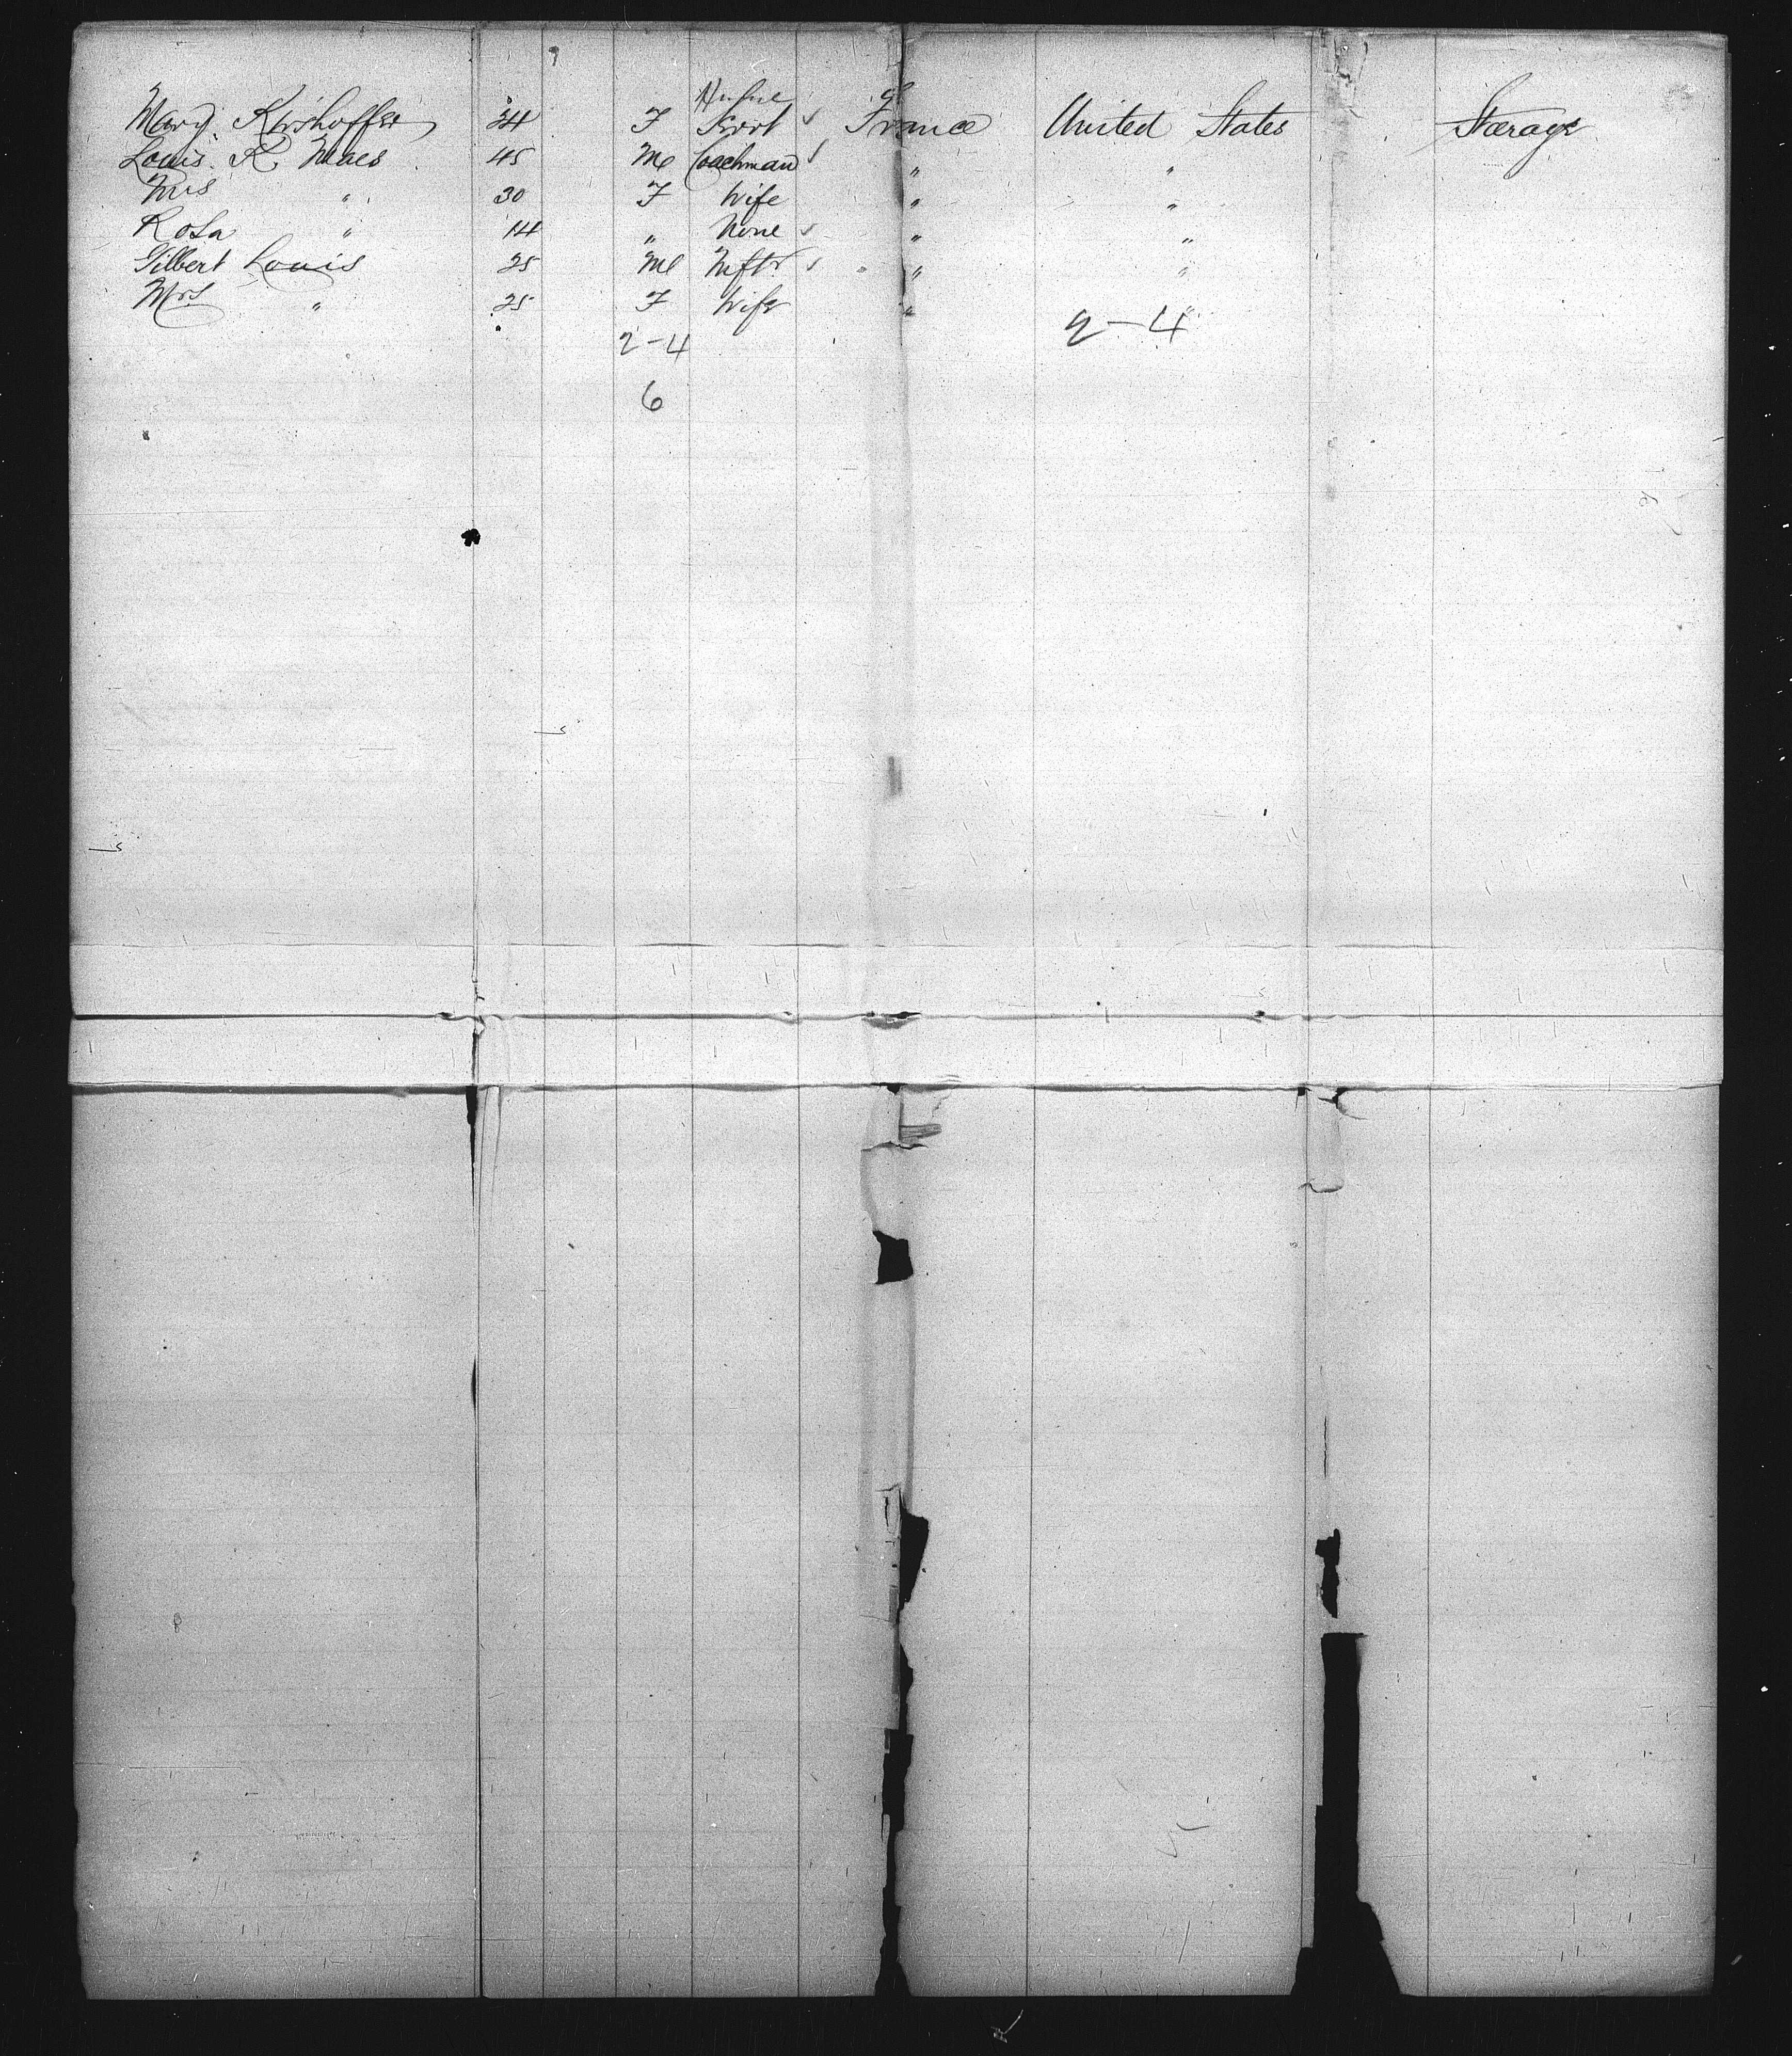 Mary Kirshoffer 24 F Servt France United States Steerage
Louis K Maes 45 M Coachman " "
Mrs " 30 F Wife " "
Rosa " 14 " None " "
Gilbert Louis 25 M Mftr " "
Mrs " 25 F Wife " "
2-4 2-4
6